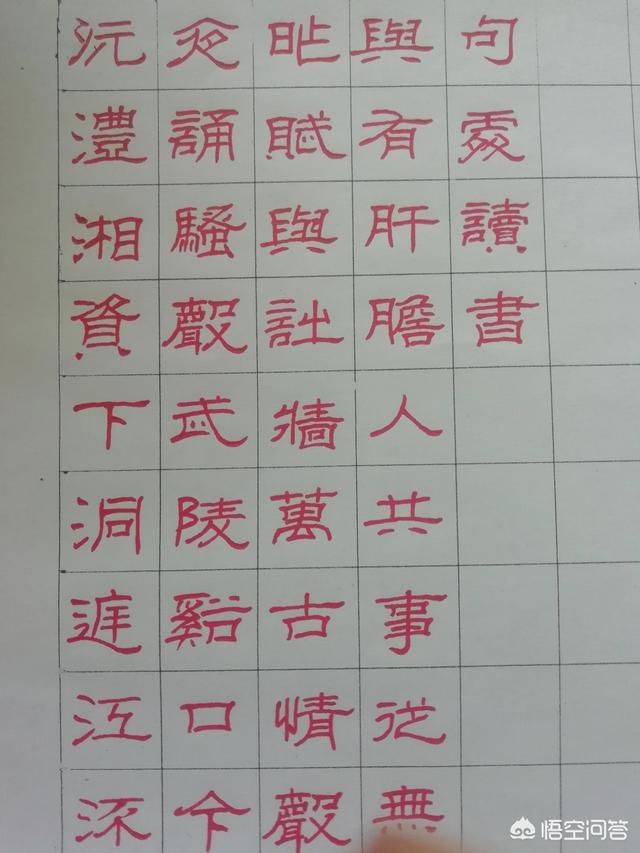 沅澧湘資下洞庭江
夜誦騷聲武陵谿口
賦與詘牆萬古情聲
與有肝膽人共事從無
句處讀書
悟空问答